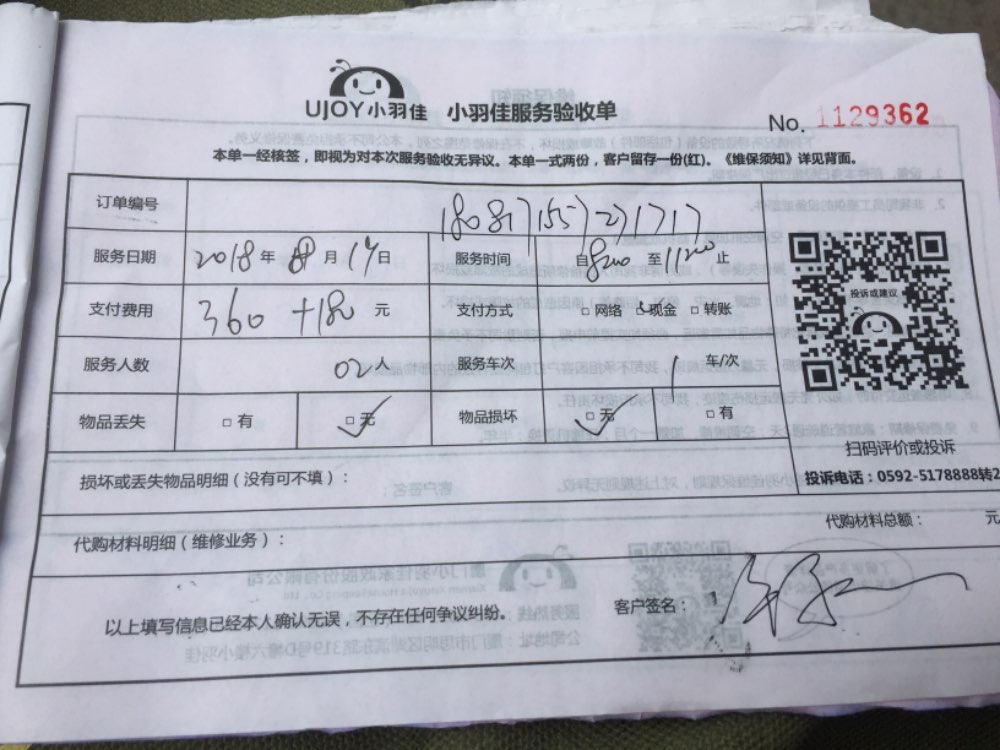 UJOY小羽佳 小羽佳服务验收单
No. 1129362
本单一经核签，即视为对本次服务验收无异议。本单一式两份，客户留存一份(红)。《维保须知》详见背面。
订单编号 1808171557271717
服务日期 2018 年 8 月 19 日 服务时间 自 8200 至 1120 止
支付费用 360 +180 元 支付方式 □ 网络 □ 现金 □ 转账
服务人数 02 人 服务车次 1 车/次
物品丢失 □ 有 □ 无 物品损坏 □ 无 □ 有
投诉或建议
扫码评价或投诉
投诉电话：0592-5178888转2
损坏或丢失物品明细（没有可不填）：
代购材料总额： 元
代购材料明细（维修业务）：
以上填写信息已经本人确认无误，不存在任何争议纠纷。
客户签名：